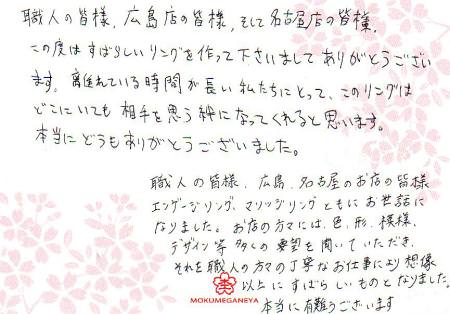 職人の皆様、広島店の皆様、そして名古屋店の皆様、
この度はすばらしいリングを作って下さいまして ありがとうござい
ます。離れている時間が長い私たちにとって、このリングは
どこにいても 相手を思う絆になってくれると思います。
本当にどうもありがとうございました。
職人の皆様、広島、名古屋のお店の皆様
エンゲージリング、マリッジリングともにお世話に
なりました。お店の方々には、色、形、模様、
デザイン等 多くの要望を聞いていただき、
それを職人の方々の丁寧なお仕事により想像
以上にすばらしいものとなりました。
本当に有難うございます
MOKUMEGANEYA